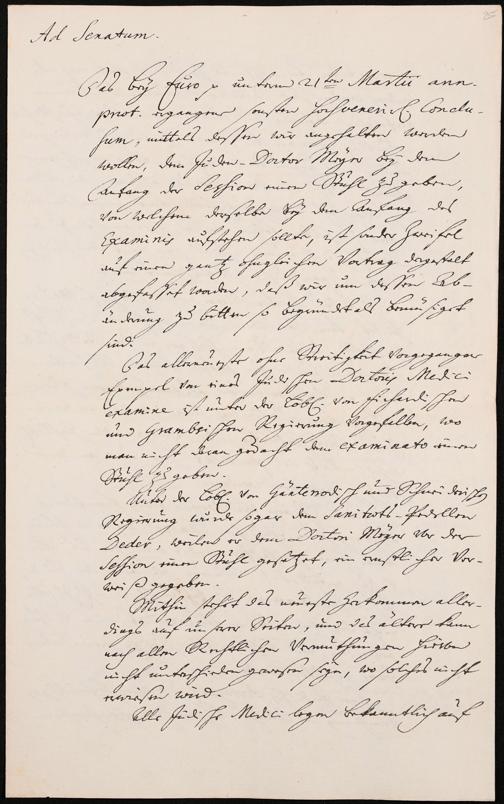 Ad Senatum.
Das bey Euro p unterm 21ten Martii ann.
prät. ergangene sonsten hochvenerirl. Conclu-
sum, mittels dessen wir angehalten werden
wollen, dem Juden-Doctor Meyer bey dem
Anfang der Session einen Stuhl zu geben,
von welchem derselbe bey dem Anfang des
Examinis aufstehen sollte, ist sonder Zweifel
auf einen gantz ohngleichen Vortrag dergestalt
abgefasset worden, daß wir um dessen Ab-
änderung zu bitten so begründet als bemüsiget
sind.
Das allerneueste ohne Streitigkeit vorgegangene
Exempel von eines Jüdischen Doctoris Medici
examine ist unter der Löbl. von
und Grambsischen Regierung vorgefallen, wo
man nicht daran gedacht dem examinato einen
Stuhl zu geben.
Unter der Löbl. von und Schneiderischen
Regierung wurde sogar dem Sanitäts-Pedellen
Deder, weilen er dem Doctori Meyer vor der
Session einen Stuhl gesetzet, ein ernstlicher Ver-
weiß gegeben.
Mithin stehet das neueste Herkommen aller-
dings auf unserer Seiten, und das ältere kann
nach allen Rechtlichen Vermuthungen hievon
nicht unterschieden gewesen seyn, wo solches nicht
erwiesen wird.
Alle Jüdische Medici legen bekanntlich auf